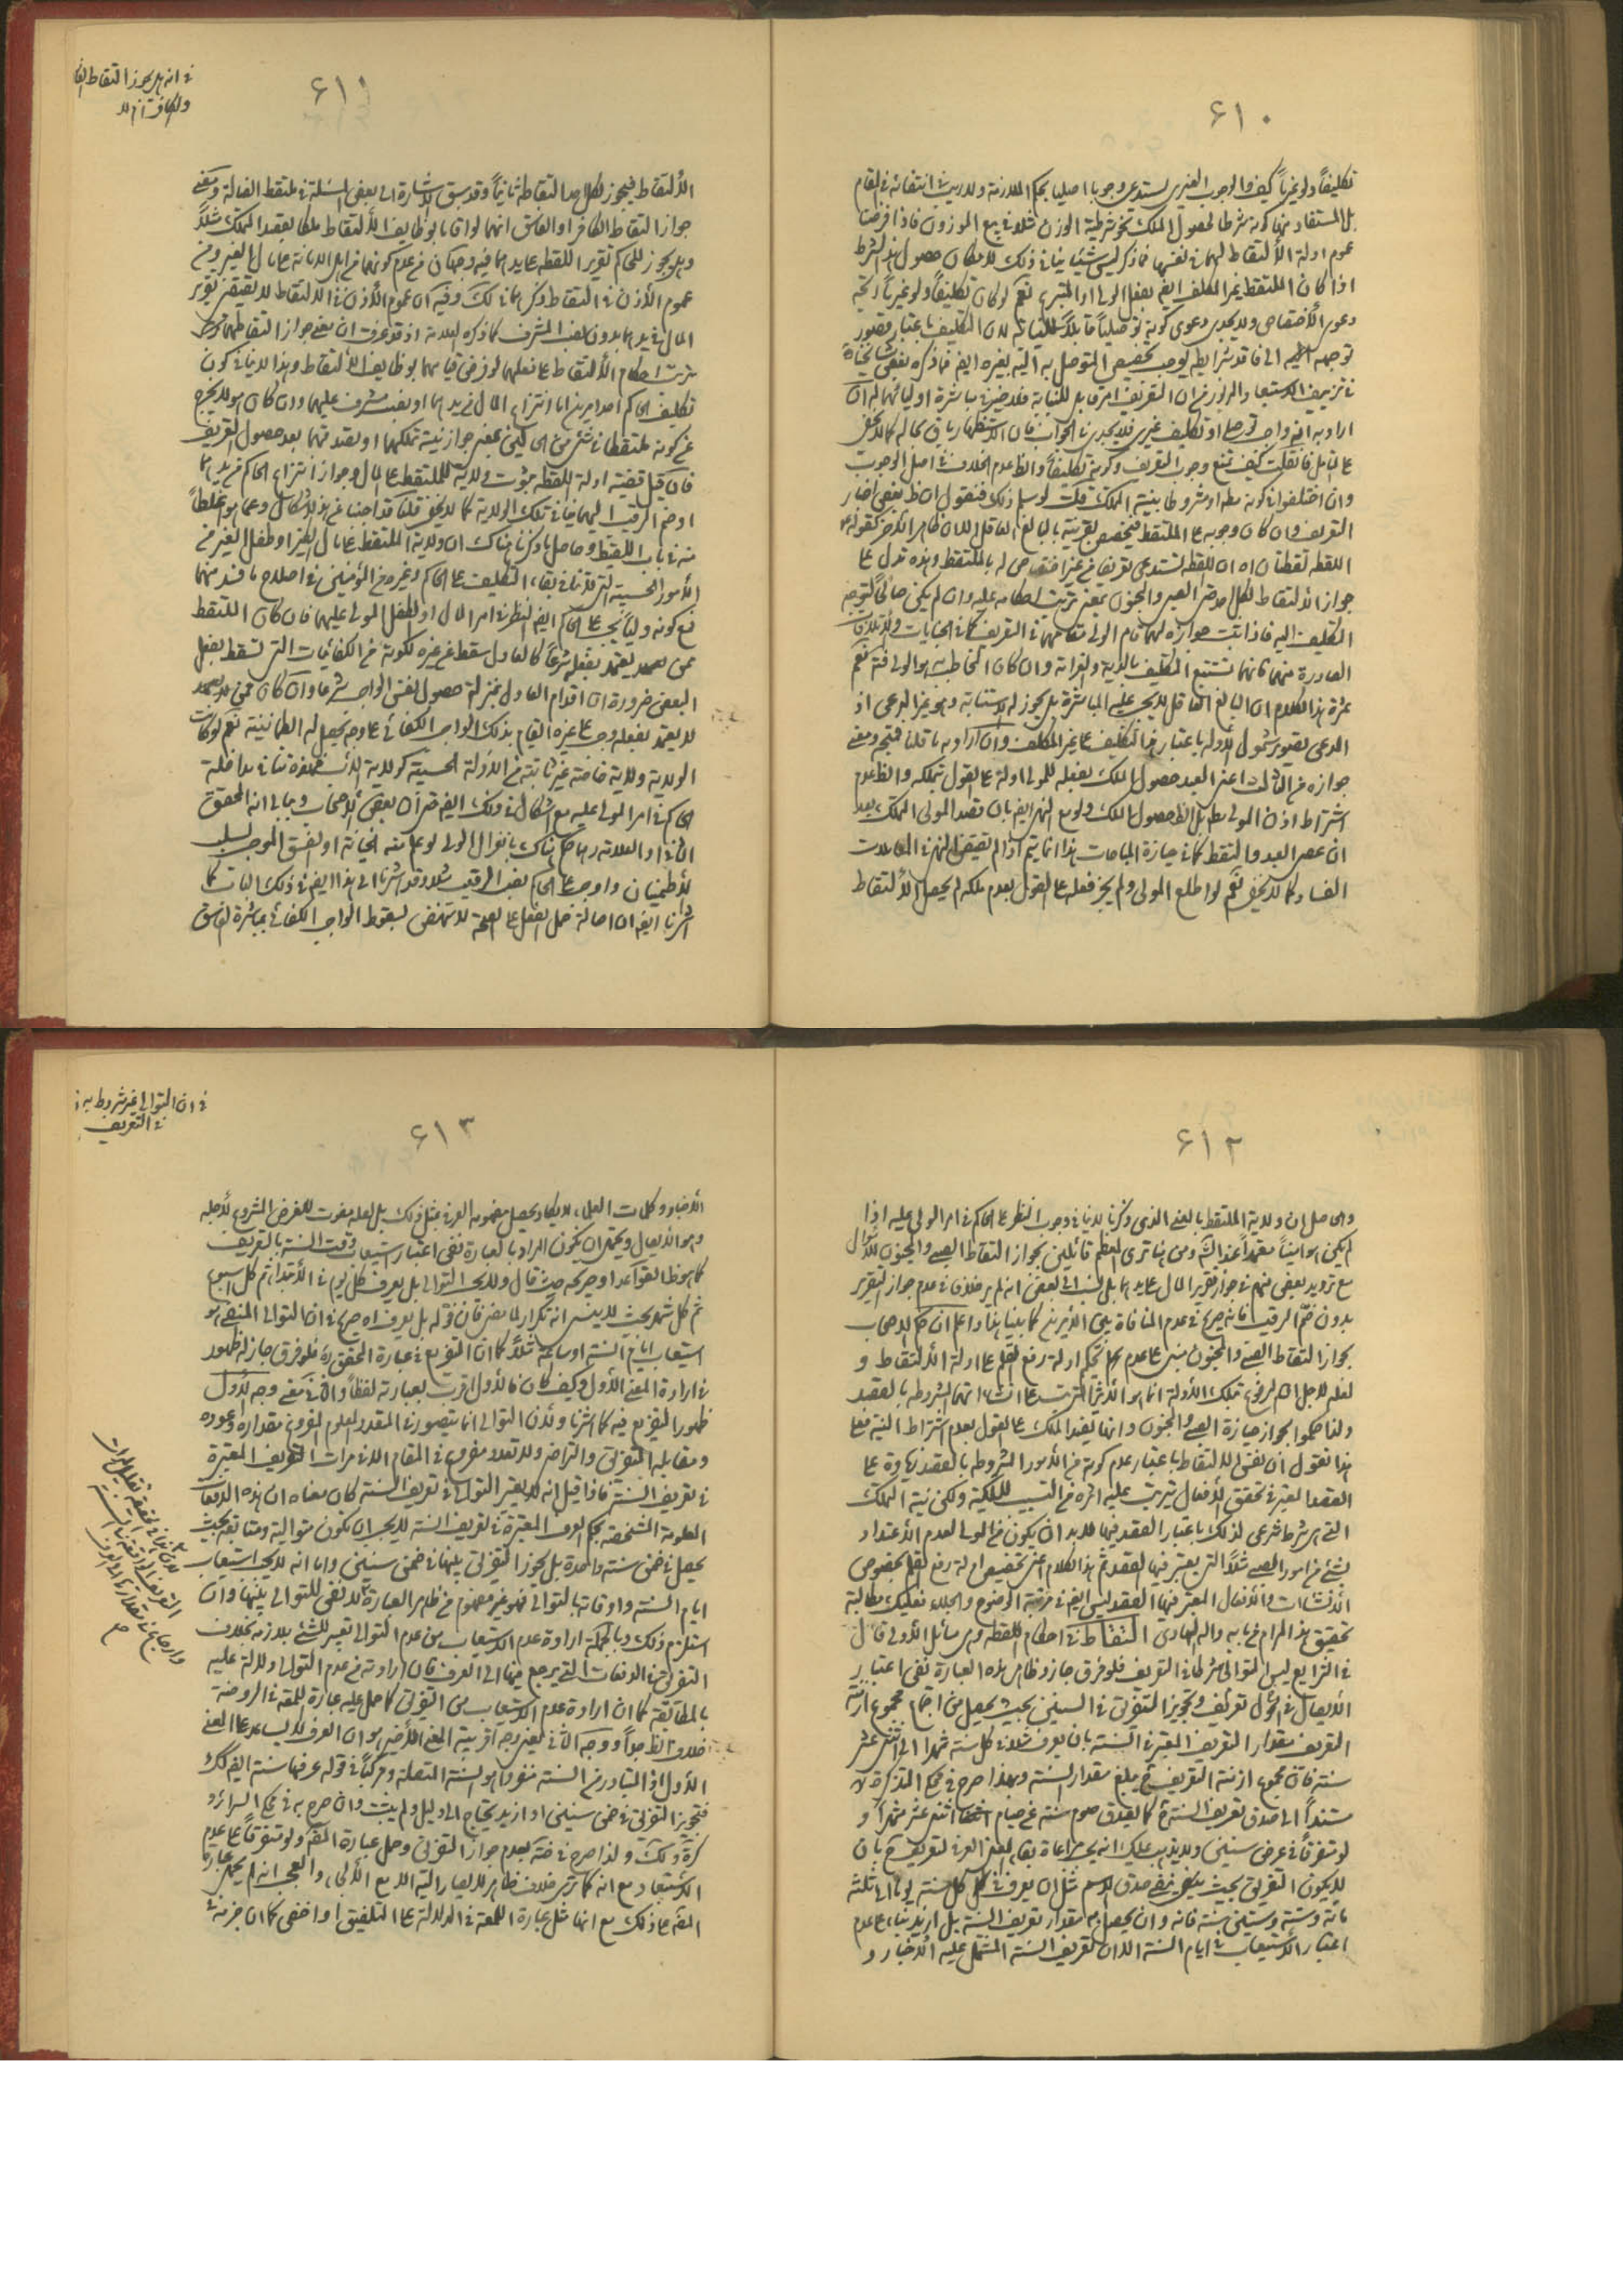 ٦١٠
تكليفاً ولو غيرياً كيف والوجوب الغيري يستدعي وجوبا اصليا بحكم الملازمة ولا ريب في انتفائه في المقام
بل المستفاد منها كونه شرطا لحصول الملك نحو شرطية الوزن مثلا في بيع الموزون فاذا فرضنا
عموم ادلة الألتقاط لهما في نفسها فما ذكر ليس شيئا ينافي ذلك لامكان حصول هذا الشرط
اذا كان الملتقط غير المكلف ايضا بفعل الولي او المتبرع نعم لو كان تكليفاً ولو غيرياً اتجه
دعوى الأختصاص ولا يجدي دعوى كونه توصلياً قابلاً للنيابة لان التكليف باعتبار قصور
توجهه الى فاقد شرايطه يوجب تخصيص المتوصل به اليه بغيره ايضا فما ذكره بعض مشايخنا
في تزييف الاستبعاد المزبور من ان التعريف امر قابل للنيابة فلا ضير في مباشرة اوليائهما له ان
اراد به انه واجب توصلي او تكليف غيري فلا يجدي في الجواب فان الاستظهار باق بحاله كما لا يخفى
على المتأمل فان قلت كيف تمنع وجوب التعريف وكونه تكليفاً والظ عدم الخلاف في اصل الوجوب
وان اختلفوا في كونه مطلقا او مشروطا بنية التملك قلت لو سلم ذلك فنقول ان ظ بعض اخبار
التعريف وان كان وجوبه على الملتقط فيختص بقرينته بالبالغ العاقل الا ان ظاهر الآخر كقوله ع
اللقطة لقطتان اه ان اللقطة تستدعي تعريفا من غير اختصاص له بالملتقط وهذه تدل على
جواز الألتقاط لكل احد حتى الصبي والمجنون بمعنى ترتب احكامه عليه وان لم يكن صالحاً لتوجه
التكليف اليه فاذا ثبت جوازه لهما قام الولي مقامهما في التعريف كما في الجنايات والأتلافات
الصادرة منهما فانهما تستتبع التكليف بالدية والغرامة وان كان المخاطب به هو الولي فته نعم
ثمرة هذا الكلام ان البالغ العاقل لا يجب عليه المباشرة بل يجوز له الاستنابة وهو غير المدعى اذ
المدعى تصوير شمول الأدلة باعتبار هذا التكليف على غير المكلف وان اراد به ما قلنا فمتجه ومعنى
جوازه من الثالث اعني العبد حصول الملك بفعله للمولى او له على القول بتملكه والظ عدم
اشتراط اذن المولى مطلقا بل الظ حصول الملك ولو مع النهي ايضا بان قصد المولى التملك بعد
ان عصى العبد والتقط كما في حيازة المباحات هذا انما يتم اذا لم يقتض النهي في المعاملات
الفساد كما لا يخفى نعم لو اطلع المولى ولم يجز فعله على القول بعدم ملكه لم يحصل الألتقاط
٦١١
في انه هل يجوز التقاط الفا
والكافر ام لا
الألتقاط فيجوز لكل احد التقاطه ثانياً وقد سبق الاشارة الى بعض المسئلة في ملتقط الضالة ومعنى
جواز التقاط الكافر او الفاسق انهما لو اقاما بوظايف الألتقاط ملكا بعقد التملك مثلاً
وهل يجوز للحاكم تقرير اللقطة على يدهما فيه وجهان من عدم كونهما من اهل الامانة على مال الغير ومن
عموم الأذن في التقاط ذكرهما في لك وفيه ان عموم الأذن في الالتقاط لا يقتضي تقرير
المال في يدهما بدون نصب المشرف كما ذكره العلامة اذ قد عرفت ان معنى جواز التقاطهما
ترتب احكام الألتقاط على فعلهما لو فرض قيامهما بوظايف الألتقاط وهذا لا ينافي كون
تكليف الحاكم احد امرين اما انتزاع المال من يدهما او نصب مشرف عليهما وان كان هو لا يخرج
عن كونه ملتقطا في شئ من الحالين بمعنى جواز نية تملكهما او تصدقهما بعد حصول التعريف
فان قيل قضية ادلة اللقطة ثبوت ولاية للملتقط على المال وجواز انتزاع الحاكم من يدهما
او ضم الرقيب اليهما ينافي تلك الولاية كما لا يخفى قلنا قد اجبنا عن هذا الاشكال وعما هو اغلظ
منه في باب اللقيط وحاصل ما ذكرنا هناك ان ولاية الملتقط على مال الغير او طفل الغير من
الأمور الحسبية التي لا تنافي بقاء التكليف على الحاكم وغيره من المؤمنين في اصلاح ما فسد منهما
فمع كونه ولياً يجب على الحاكم ايضا النظر في امر المال او الطفل المولى عليهما فان كان الملتقط
ممن يعتمد بفعله شرعاً كالعادل سقط عن غيره لكونه من الكفائيات التي تسقط بفعل
البعض ضرورة ان اقدام العادل بمنزلة حصول نفس الواجب شرعا وان كان ممن
لا يعتمد بفعله وجب على غيره القيام بذلك الواجب الكفائي على وجه يحصل له الطمانينة نعم لو كانت
الولاية ولاية خاصة غير ثابتة من الأدلة الحسبية كولاية الأب مثلا تنافي مداخلة
الحاكم في امر المولى عليه مع اشكال في ذلك ايضا حتى ان بعض الأصحاب وببالي انه المحقق
الثاني او العلامة رهما حكم هناك بانعزال الولي لو علم منه الخيانة او الفسق الموجب لسلب
الأطمينان واوجب على الحاكم نصب الرقيب مثلا وقد اشرنا الى هذا ايضا في ذلك الباب كما
اشرنا ايضا ان اصالة حمل الفعل على الصحة لا تنهض لسقوط الواجب الكفائي بمباشرة الفاسق
٦١٢
والحاصل ان ولاية الملتقط بالمعنى الذي ذكرنا لا ينافي وجوب النظر على الحاكم في امر المولى عليه اذا
لم يكن هو امينا معتمداً عند الشرع ومن هنا ترى المعظم قائلين بجواز التقاط الصبي والمجنون للأموال
مع ترديد بعض منهم في جواز تقرير المال على يدهما بل نسب الى بعض انه لم ير خلاف في عدم جواز التقرير
بدون ضم الرقيب فانه صريح في عدم المنافاة بين الأمرين كما بينا هنا واعلم ان حكم الاصحاب
بجواز التقاط الصبي والمجنون مبني على عدم تحكيم ادلة رفع القلم على ادلة الألتقاط و
لعله لاجل ان المرفوع بتلك الأدلة انما هو الأثر المترتب على انشاءاتهما المشروطة بالقصد
ولذا حكموا بجواز حيازة الصبي والمجنون وانها يفيد الملك على القول بعدم اشتراط النية فعلى
هذا نقول ان نفس الالتقاط باعتبار عدم كونه من الأمور المشروطة بالقصد زيادة على
القصد المعتبر في تحقق الأفعال يترتب عليه اثره من التسبيب للملكية ولكن نية التملك
التي هي شرط شرعي لذلك باعتبار القصد فيها لا بد ان يكون من المولى لعدم الأعتداد
بشئ من امور الصبي مثلاً التي يعتبر فيها القصد ثم هذا الكلام اعني تخصيص ادلة رفع القلم بخصوص
الأنشاءات والأفعال المعتبر فيها القصد ليس ايضا في مرتبة الوضوح والجلاء فعليك بمطالبة
تحقيق هذا المرام من بابه والله الهادي التقاط في احكام اللقطة وهي مسائل الأولى قال
في الشرايع ليس التوالي شرطا في التعريف فلو فرق جاز وظاهر هذه العبارة نفى اعتبار
الأيصال في الحول تعريفه وتجويز التفريق في السنين بحيث يحصل من اجتماع مجموع ازمنة
التعريف مقدار التعريف المعتبر في السنة بان يعرف مثلا في كل سنة شهرا الى اثني عشر
سنة فان مجموع ازمنة التعريف ح يبلغ مقدار السنة وبهذا صرح في محكي التذكرة
مستنداً الى صدق تعريف السنة ح كما يصدق صوم سنة على صيام اثني عشر شهراً و
لو متفرقاً في عرض سنين ولا يذهب عليك انه يجب مراعاة بقاء المعنى العرفي لتعريف ح بان
لا يكون التفريق بحيث ينفي صدق الاسم مثل ان يعرف في كل سنة يوما الى ثلثة
مائة وستة وستين سنة فانه وان يحصل به مقدار تعريف السنة بل ازيد بناء على عدم
اعتبار الأستيعاب في ايام السنة الا ان تعريف السنة المشتمل عليه الأخبار و
٦١٣
في ان التوالي غير شروط به
في التعريف
الأخبار وكلمات العلماء لا يكاد يحصل مفهومه العرفي بمثل ذلك بل لعله مفوت للغرض المشروع لأجله
وهو الأيصال ويحتمل ان يكون المراد بالعبارة نفى اعتبار استيعاب وقت السنة بالتعريف
كما هو ظ القواعد او صريحه حيث قال ولا يجب التوالي بل يعرف كل يوم في الأبتداء ثم كل اسبوع
ثم كل شهر بحيث لا ينسى انه تكرار لما مضى فان قوله بل يعرف اه صريح في ان التوالي المنفي هو
استيعاب ايام السنة او ساعته مثلاً كما ان التفريع في عبارة المحقق ره فلو فرق جاز له ظهور
في ارادة المعنى الأول وكيف كان فالأول اقرب بعبارته لفظاً والثاني معنى وجه الأول
ظهور التفريع فيه كما اشرنا ولأن التوالي انما يتصور في المقدر المعلوم المفروغ مقداره وعدده
ومقابله التفريق والتراخي ولا تعدد مفروغ في المقام الا في مرات التعريف المعتبرة
في تعريف السنة فاذا قيل انه لا يعتبر التوالي في تعريف السنة كان معناه ان هذه الدفعات
المعلومة المشخصة بحكم العرف المعتبرة في تعريف السنة لا يجب ان تكون متوالية ومتتابعة بحيث
يحصل في ضمن سنة واحدة بل يجوز التفريق بينها في ضمن سنين واما انه لا يجب استيعاب
ايام السنة واوقاتها بالتوالي فهو غير مفهوم من ظاهر العبارة لا نفى للتوالي بينها وان
استلزم ذلك وبالجملة ارادة عدم الاستيعاب من عدم التوالي تعبير للشئ بلازمه بخلاف
التفريق في الدفعات التي يرجع فيها الى العرف فان ارادته من عدم التوالي دلالة عليه
بالمطابقة كما ان ارادة عدم الاستيعاب من التفريق كما حمل عليه عبارة اللمعة في الروضة
خلاف الظ جداً ووجه الثاني يعني وجه اقربية المعنى الأخير هو ان العرف لا يساعد على المعنى
الأول اذ المتبادر من السنة منفردا هو السنة المتصلة ومركباً في قوله عرفها سنة ايضا كك
فتجويز التفريق في ضمن سنين او ازيد يحتاج الى دليل ولم يثبت وان صرح به في محكي السرائر و
كرة ولك ولذا صرح في ضه بعدم جواز التفريق وحمل عبارة اللمعة ولو متفرقاً على عدم
الأستيعاد مع انه كما ترى خلاف ظاهر لا يصار اليه الا مع الألجاء والعجب انه لم يحمل عبارة
المتن على ذلك مع انها مثل عبارة اللمعة في الدلالة على التلفيق او اخفى كما ان خرمة في